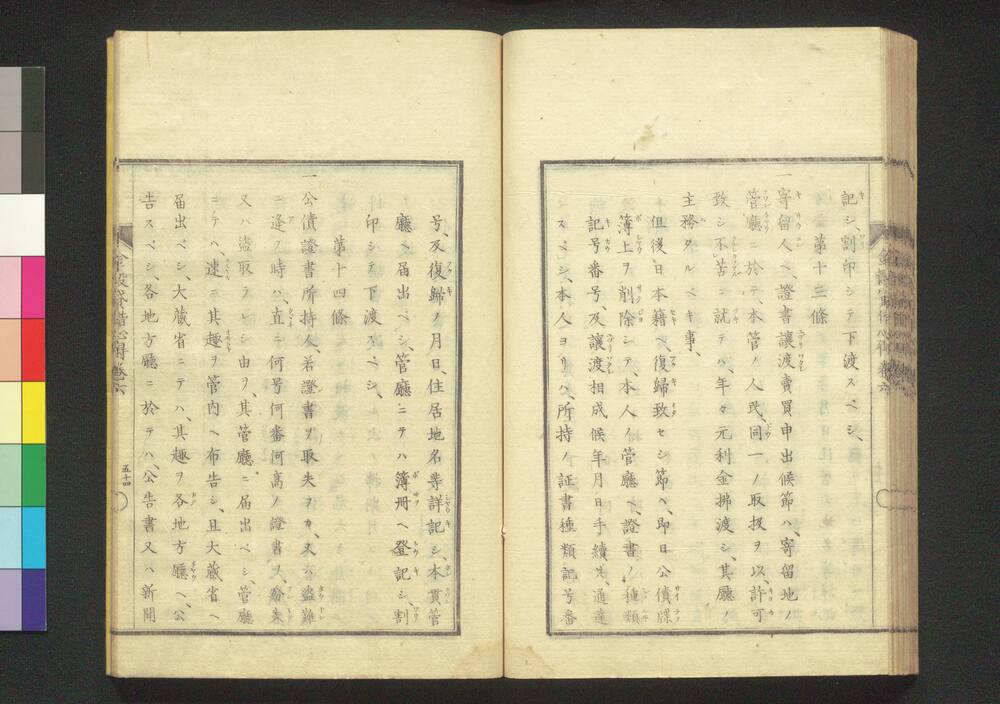 記シ、割印シテ下渡スベシ、
第十三條
一寄留人ヘ、證書讓渡賣買申出候節ハ、寄留地ノ
管廳ニ於テ、本管ノ人民、同一ノ取扱ヲ以、許可
致シ不苦ニ就テハ、年々元利金拂渡シ、其廳ノ
主務タルベキ事、
但後日本籍ヘ復歸致セシ節ヘ、即日公債牒
簿上ヲ削除シテ、本人ノ管廳ヘ、證書ノ種類
記号番号、及讓渡相成候年月日手續共、通達
スベシ、本人ヨリハ、所持ノ証書種類記号番
号、及復歸ノ月日、住居地名等詳記シ、本貫管
廳ヘ届出ベシ、管廳ニテハ簿冊ヘ登記シ、割
印シテ下渡スベシ、
第十四條
一公債證書所持人、若證書ヲ取失ヲカ、又ハ盗難
ニ逢フ時ハ、直ニ何号何番何髙ノ證書ヲ、
又ハ盗取ラレシ由ヲ、其管廳ニ届出ベシ、管廳
ニテハ速ニ其趣ヲ管内ヘ布告シ、且大藏省ヘ
届出ベシ、大蔵省ニテハ、其趣ヲ各地方廳ヘ、公
告スベシ、各地方廳ニ於テハ、公告書又ハ新聞
五十四